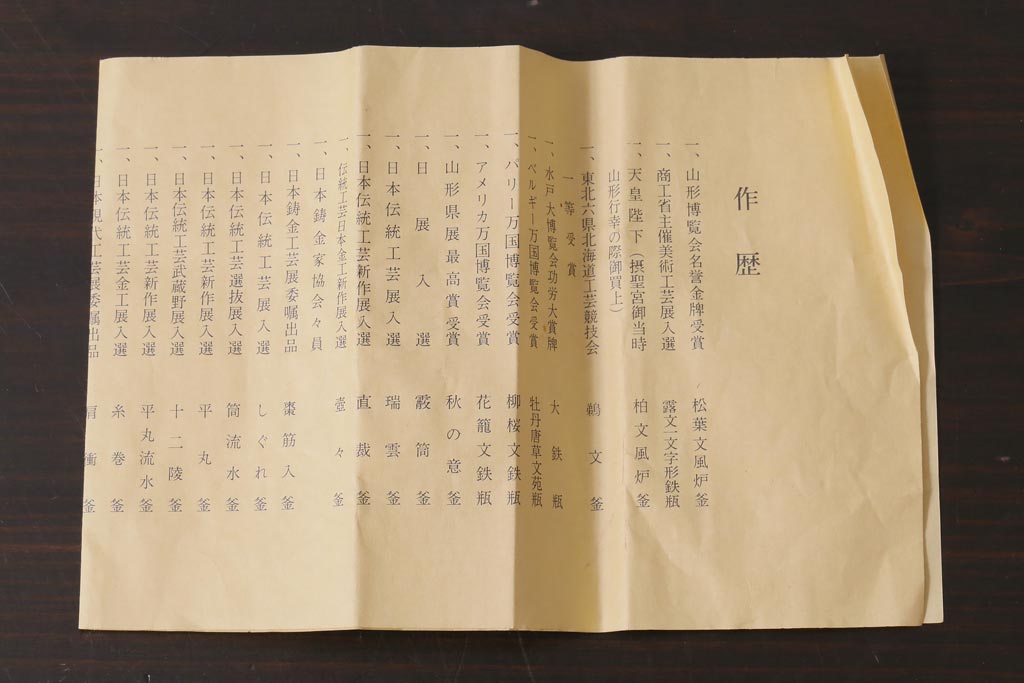 作歴
一、山形博覧会名誉金牌受賞 松葉文風炉釜
一、商工省主催美術工芸展入選 露文一文字形鉄瓶
一、天皇陛下(摂聖宮御当時 柏文風炉釜
山形行幸の際御買上)
一、東北六県北海道工芸競技会 鵜文釜
一等受賞
一、水戸大博覧会功労大賞牌 大鉄瓶
一、ベルギー万国博覧会受賞 牡丹唐草文苑瓶
一、パリー万国博覧会受賞 柳桜文鉄瓶
一、アメリカ万国博覧会受賞 花籠文鉄瓶
一、山形県展最高賞受賞 秋の意釜
一、日展入選 霰筒釜
一、日本伝統工芸展入選 瑞雲釜
一、日本伝統工芸新作展入選 直裁釜
一、伝統工芸日本金工新作展入選 壺々釜
一、日本鋳金家協会々員
一、日本鋳金工芸展委嘱出品 棗筋入釜
一、日本伝統工芸展入選 しぐれ釜
一、日本伝統工芸選抜展入選 筒流水釜
一、日本伝統工芸新作展入選 平丸釜
一、日本伝統工芸武蔵野展入選 十二陵釜
一、日本伝統工芸新作展入選 平丸流水釜
一、日本伝統工芸金工展入選 糸巻釜
一、日本現代工芸展委嘱出品 肩衝釜